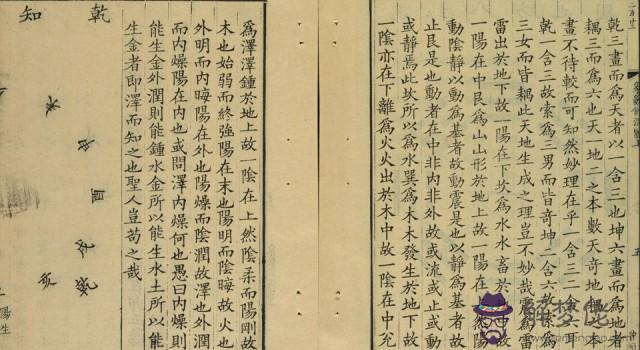 乾三畫而爲天者以一含三也坤六畫而爲地者
耦三而爲六也天一地二之本數天奇地耦
畫不待較而可知然妙理在乎一含三二耳
乾一含三故索爲三男而皆奇坤二含六故索爲
三女而皆耦此天地生成之理豈不妙哉震爲雷
雷出於地下故一陽在下坎爲水水畜於
一陽在中艮爲山山形於地上故一陽在上然陽
動陰靜以動爲基者故動震是也以靜爲基者故
止艮是也動者在中非内非外故或流或止或動
或靜焉此坎所以爲水巽爲木木發生於地下故
一陰亦在下離爲火火出於木中故一陰在中兌
爲澤澤鍾於地上故一陰在上然陰柔而陽剛故
木也始弱而終強陽在末也陽明而陰晦故火也
外明而内晦陽在外也陽燥而陰潤故澤也外潤
而内燥陽在内也或問澤内燥何也愚曰内燥則
能生金外潤則能鍾水金所以能生水土所以能
生金者即澤而知之也聖人豈苟之哉
乾
知
酉
亥
陽生
解夢佬